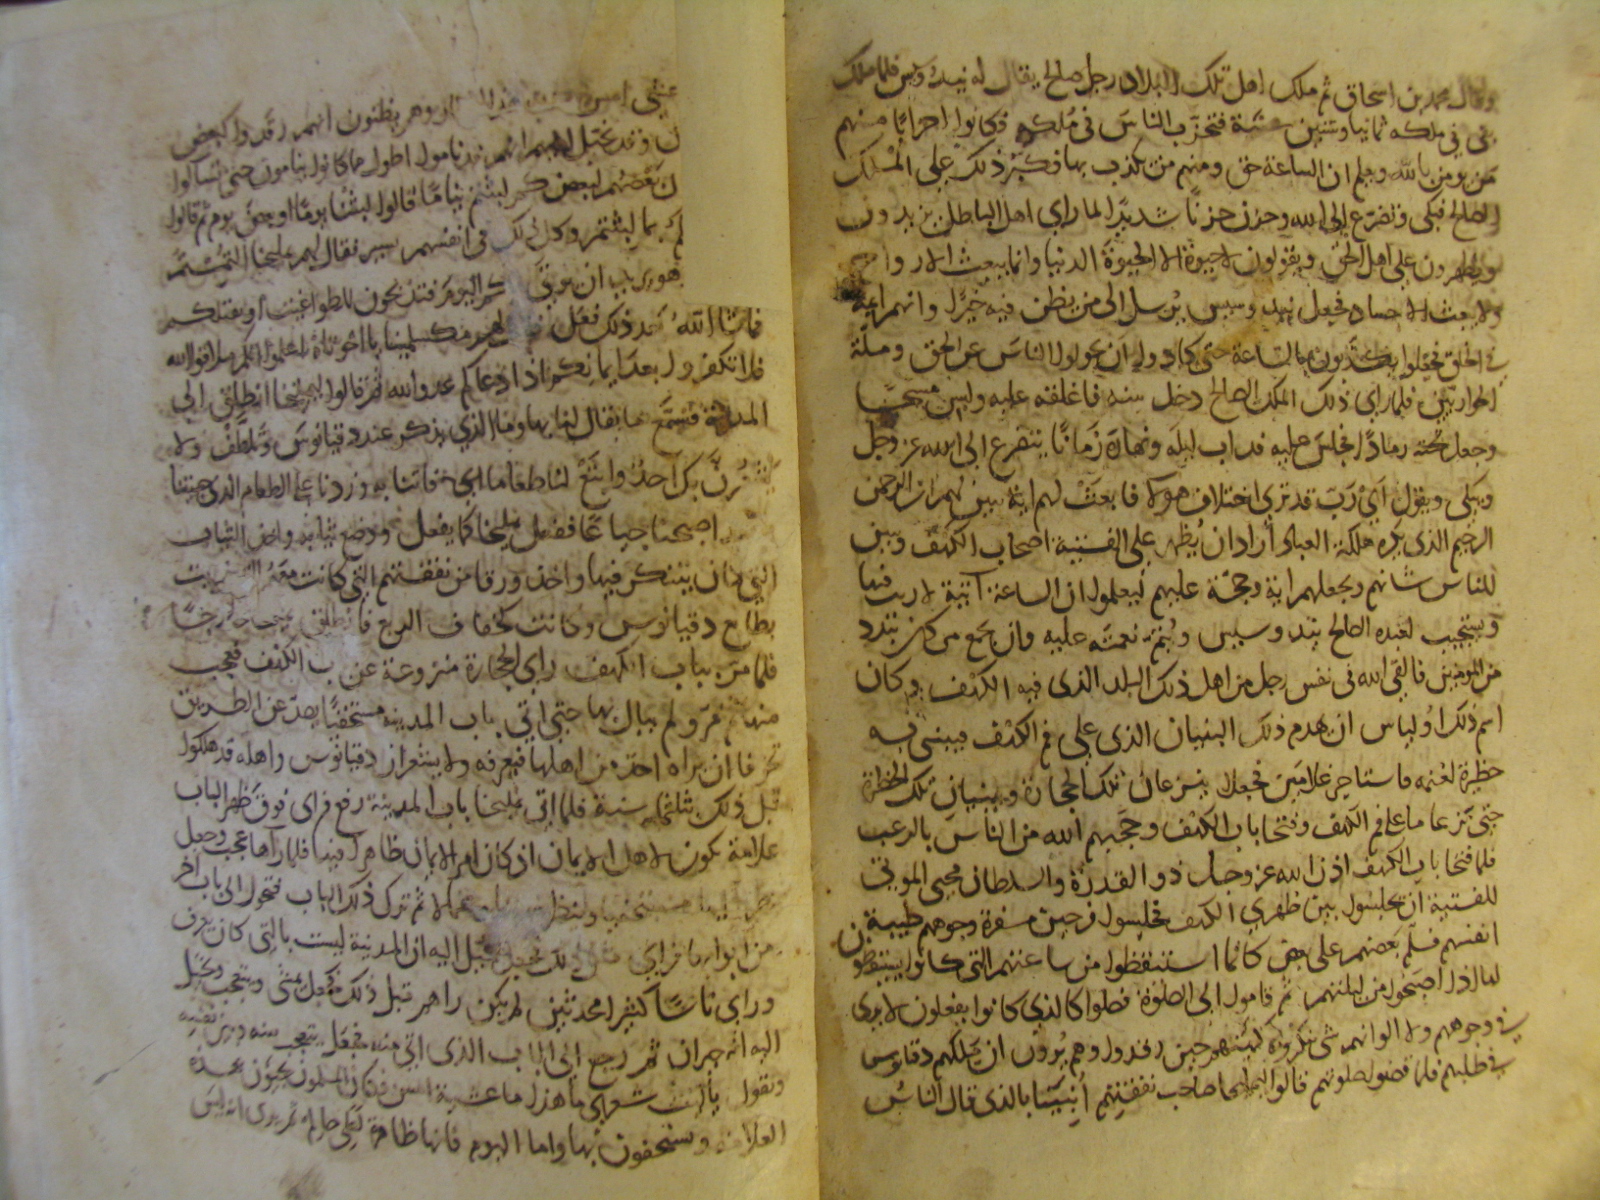 وقال محمد بن اسحاق ثم ملك اهل تلك البلاد رجل صالح يقال له تيدوسيس فلما ملك
بقي في ملكه ثمانيا وستين سنة فتحزب الناس في ملكه فكانوا احزابا منهم
من يومن بالله ويعلم ان الساعة حق ومنهم من يكذب بها فكبر ذلك على الملك
الصالح فبكى وتضرع الى الله وحزن حزنا شديدا لما راى اهل الباطل يزيدون
ويظهرون على اهل الحق ويقولون لا حيوة الا الحيوة الدنيا وانما يبعث الارواح
ولا يبعث الاجساد فجعل تيدوسيس يرسل الى من يظن فيه خيرا وانهم ايمة
في الخلق فجعلوا يكذبون بالساعة حتى كادوا ان يحولوا الناس عن الحق وملة
الحواريين فلما راى ذلك الملك الصالح دخل بيته فاغلقه عليه ولبس مسحا
وجعل تحته رمادا فجلس عليه فداب ليله ونهاره زمانا يتضرع الى الله عز وجل
ويبكي ويقول اي رب قد ترى اختلاف هولا فابعث لهم اية تبين لهم ان الرحمن
الرحيم الذي يكره هلكة العباد اراد ان يظهر على الفتية اصحاب الكهف ويبين
للناس شانهم ويجعلهم اية وحجة عليهم ليعلموا ان الساعة اتية لا ريب فيها
ويستجيب لعبده الصالح تيدوسيس ويتم نعمته عليه وان يجمع من كان تبدد
من المومنين فالقى الله في نفس رجل من اهل ذلك البلد الذي فيه الكهف وكان
اسم ذلك اولياس ان يهدم ذلك البنيان الذي على فم الكهف فيبني به
حظيرة لغنمه فاستاجر غلامين فجعلا ينزعان تلك الحجارة ويبنيان تلك الحظيرة
حتى نزعا ما على فم الكهف وفتحا باب الكهف وحجبهم الله من الناس بالرعب
فلما فتحا باب الكهف اذن الله عز وجل ذو القدرة والسلطان محيي الموتى
للفتية ان يجلسوا بين ظهري الكهف فجلسوا فرحين مسفرة وجوههم طيبة
انفسهم فسلم بعضهم على بعض كانما استيقظوا من ساعتهم التي كانوا يستيقظون
لها اذا اصبحوا من ليلتهم ثم قاموا الى الصلوة فصلوا كالذي كانوا يفعلون لا يرى
في وجوههم ولا الوانهم شي ينكرونه كهيئتهم حين رقدوا وهم يرون ان ملكهم دقيانوس
في طلبهم فلما قضوا صلوتهم قالوا ليمليخا صاحب نفقتهم انبينا بالذي قال الناس
عشي امس وهم يظنون انهم رقدوا كبعض
وقد تخيل اليهم انهم قد ناموا اطول ما كانوا ينامون حتى تساءلوا
بعضهم لبعض كم لبثتم نياما قالوا لبثنا يوما او بعض يوم ثم قالوا
بما لبثتم وكل ذلك في انفسهم يسير فقال لهم يمليخا التمستم
هو يريد ان يوتى اليوم فتذبحون للطواغيت او يقتلكم
فما شا الله بعد ذلك فعل لهم مكسلمينا يا اخوتاه اعلموا انكم ملاقوا الله
فلا تكفروا بعد ايمانكم اذا دعاكم عدو الله ثم قالوا ليمليخا انطلق الى
المدينة فتسمع ما يقال لنا بها وما الذي يذكر عند دقيانوس وتلطف ولا
يشعرن بك احد وابتغ لنا طعاما فاتنا به وزدنا على الطعام الذي جيتنا
اصبحنا جياعا ففعل يمليخا كما يفعل ووضع ثيابه واخذ الثياب
التي كان يتنكر فيها واخذ ورقا من نفقتهم التي كانت معهم التي ضربت
بطابع دقيانوس وكانت كخفاف الربع فانطلق يمليخا خارجا
فلما مر بباب الكهف راى الحجارة منزوعة عن باب الكهف فعجب
منه ثم مر ولم يبال بها حتى اتى باب المدينة مستخفيا يصد عن الطريق
تخوفا ان يراه احد من اهلها فيعرفه ولا يشعر ان دقيانوس واهله قد هلكوا
قبل ذلك بثلثماية سنة فلما اتى يمليخا باب المدينة رفع فراى فوق ظهر الباب
علامة تكون لاهل الايمان اذ كان امر الايمان ظاهرا فيها فلما رآها عجب وجعل
ينظر اليها مستخفيا وينظر ثم ترك ذلك الباب فتحول الى باب اخر
من ابوابها فراى مثل ذلك فجعل يخيل اليه ان المدينة ليست بالتي كان يعرف
وراى ناسا كثيرا محدثين لم يكن راهم قبل ذلك فجعل يمشي ويتعجب ويخيل
اليه انه حيران ثم رجع الى الباب الذي اتى منه فجعل يتعجب بينه وبين نفسه
ويقول يا ليت شعري ما هذا اما عشية امس فكان المسلمون يخبون هذه
العلامة ويستخفون بها واما اليوم فانها ظاهرة لعلي حالم ثم يرى انه ليس